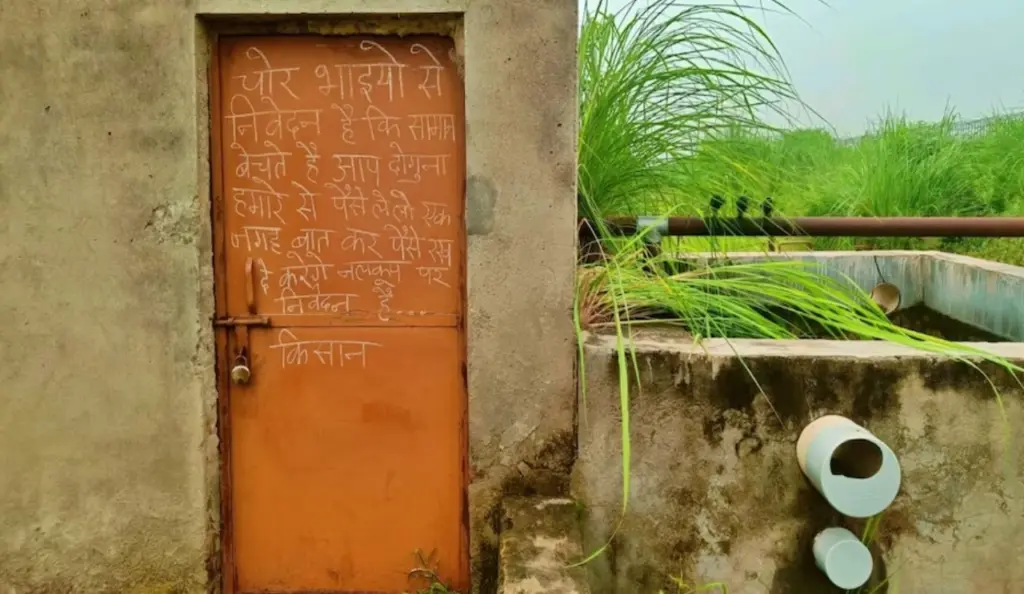 चोर भाइयो से
निवेदन है कि सामान
बेचते है आप दोगुना
हमारे से पैसे लेलो एक
जगह बात कर पैसे रख
है करेगे जलकम पर
निवेदन है...
किसान